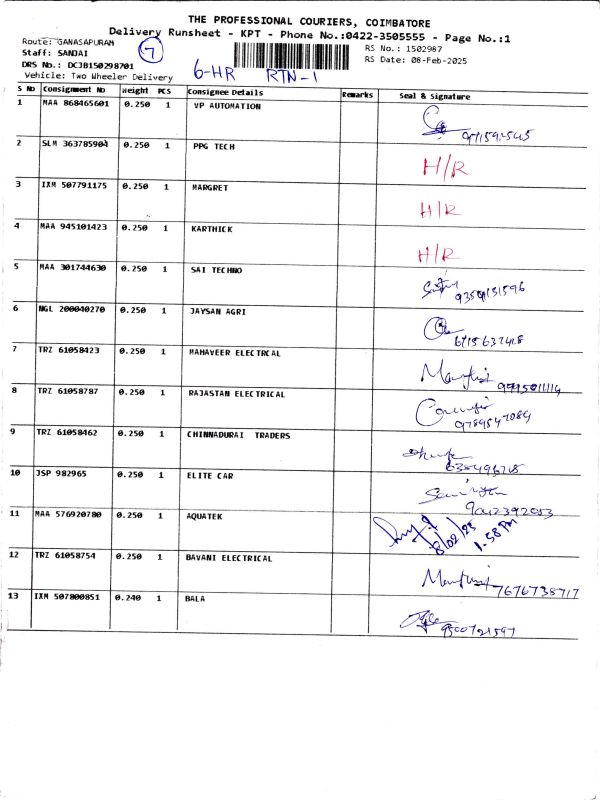 THE PROFESSIONAL COURIERS, COIMBATORE
Delivery Runsheet - KPT - Phone No.:0422-3505555 - Page No.:1
Route: GANASAPURAM
Staff: SANJAI
DRS No.: DCJB150298701
Vehicle: Two Wheeler Delivery
7
6-HR RTN-1
RS No.: 1502987
RS Date: 08-Feb-2025
S No Consignment No Weight PCS Consignee Details Remarks Seal & Signature
1 MAA 868465601 0.250 1 VP AUTOMATION
2 SLM 363785904 0.250 1 PPG TECH H/R
3 IXM 507791175 0.250 1 MARGRET H/R
4 MAA 945101423 0.250 1 KARTHICK H/R
5 MAA 301744630 0.250 1 SAI TECHNO 9359151596
6 NGL 200040270 0.250 1 JAYSAN AGRI
7 TRZ 61058423 0.250 1 MAHAVEER ELECTRCAL
8 TRZ 61058787 0.250 1 RAJASTAN ELECTRICAL
9 TRZ 61058462 0.250 1 CHINNADURAI TRADERS
10 JSP 982965 0.250 1 ELITE CAR
11 MAA 576920780 0.250 1 AQUATEK 8/02/25 1.58 PM
12 TRZ 61058754 0.250 1 BAVANI ELECTRICAL 7676738717
13 IXM 507800851 0.240 1 BALA